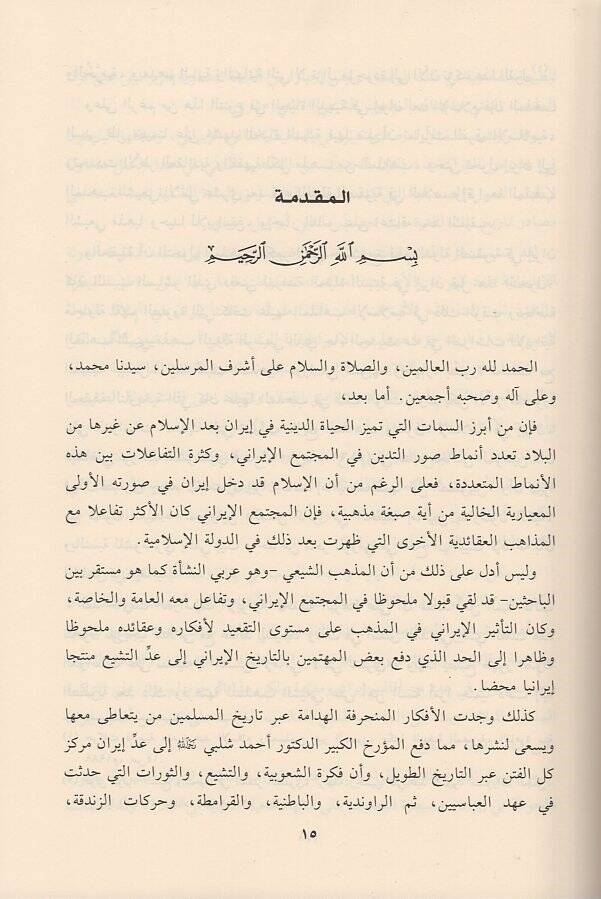 المقدمة
بسم الله الرحمن الرحيم
الحمد لله رب العالمين، والصلاة والسلام على أشرف المرسلين، سيدنا محمد،
وعلى آله وصحبه أجمعين. أما بعد،
فإن من أبرز السمات التي تميز الحياة الدينية في إيران بعد الإسلام عن غيرها من
البلاد تعدد أنماط صور التدين في المجتمع الإيراني، وكثرة التفاعلات بين هذه
الأنماط المتعددة، فعلى الرغم من أن الإسلام قد دخل إيران في صورته الأولى
المعيارية الخالية من أية صبغة مذهبية، فإن المجتمع الإيراني كان الأكثر تفاعلا مع
المذاهب العقائدية الأخرى التي ظهرت بعد ذلك في الدولة الإسلامية.
وليس أدل على ذلك من أن المذهب الشيعي -وهو عربي النشأة كما هو مستقر بين
الباحثين- قد لقي قبولا ملحوظا في المجتمع الإيراني، وتفاعل معه العامة والخاصة،
وكان التأثير الإيراني في المذهب على مستوى التقعيد لأفكاره وعقائده ملحوظا
وظاهرا إلى الحد الذي دفع بعض المهتمين بالتاريخ الإيراني إلى عدِّ التشيع منتجا
إيرانيا محضا.
كذلك وجدت الأفكار المنحرفة الهدامة عبر تاريخ المسلمين من يتعاطى معها
ويسعى لنشرها، مما دفع المؤرخ الكبير الدكتور أحمد شلبي إلى عدِّ إيران مركز
كل الفتن عبر التاريخ الطويل، وأن فكرة الشعوبية، والتشيع، والثورات التي حدثت
في عهد العباسيين، ثم الراوندية، والباطنية، والقرامطة، وحركات الزندقة،
١٥